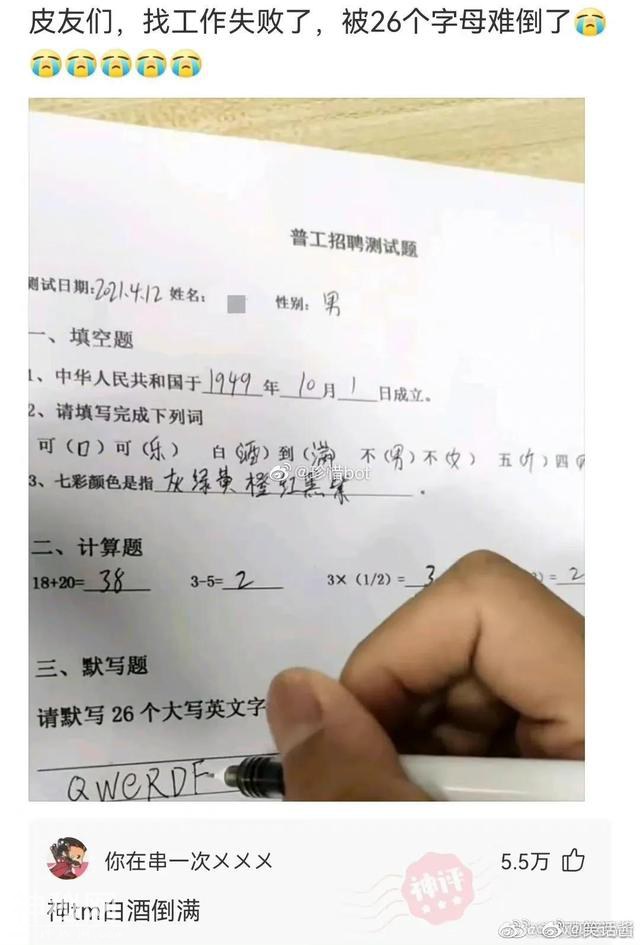 皮友们，找工作失败了，被26个字母难倒了😭
😭😭😭😭😭
普工招聘测试题
测试日期:2021.4.12 姓名: 性别: 男
一、填空题
1、中华人民共和国于1949年10月1日成立。
2、请填写完成下列词
可（口）可（乐） 白（酒）到（满） 不（男）不（女） 五（）四（
3、七彩颜色是指灰绿黄橙红黑紫。
@珍惜bot
二、计算题
18+20=38 3-5=2 3×（1/2）=3 ）=2
三、默写题
请默写26个大写英文字
QWeRDF
你在串一次メメメ 5.5万
神评
神tm白酒倒满